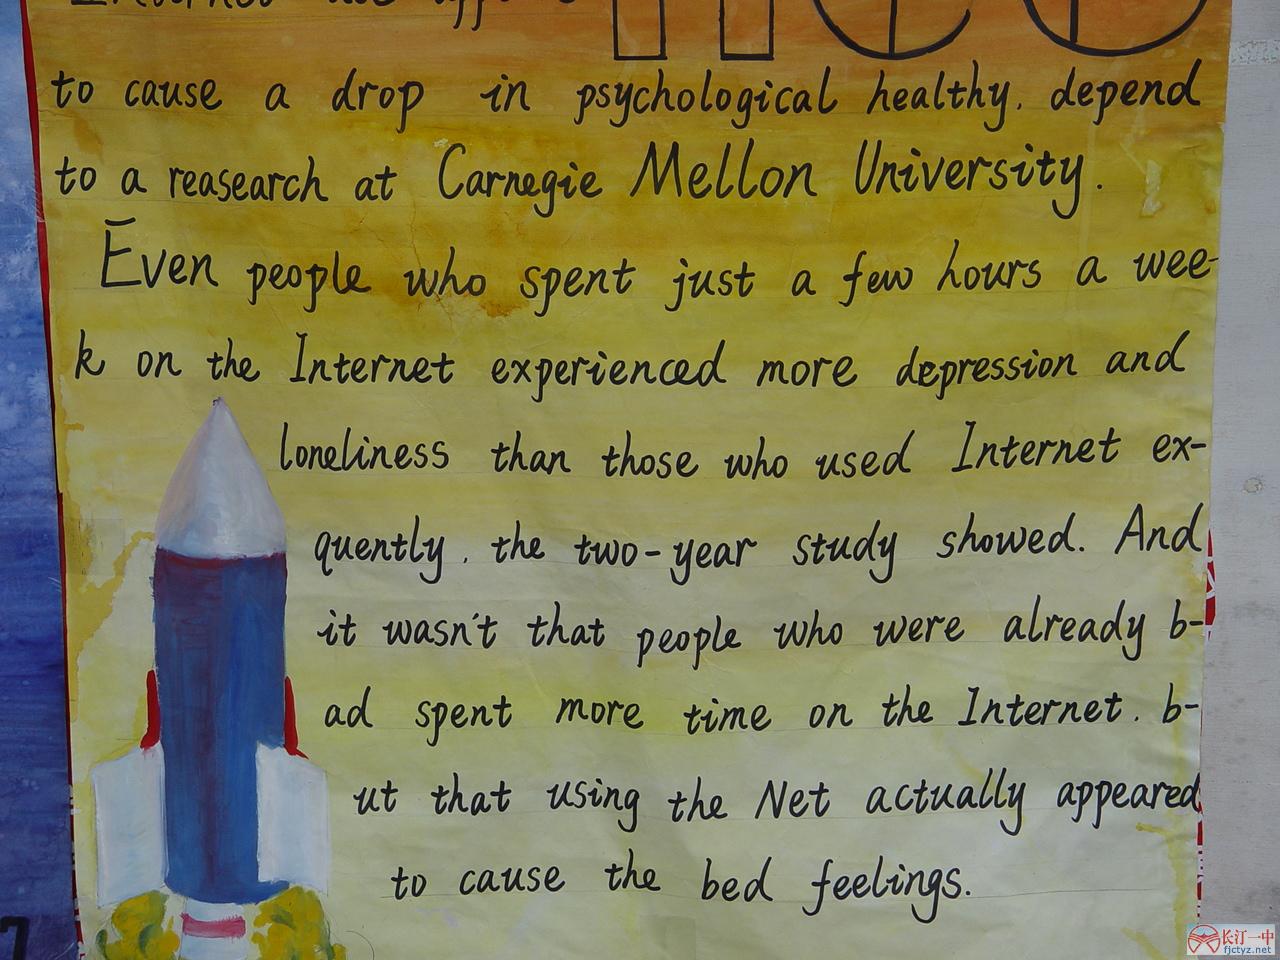 Internet use
to cause a drop in psychological healthy. depend
to a reasearch at Carnegie Mellon University.
Even people who spent just a few hours a wee-
k on the Internet experienced more depression and
loneliness than those who used Internet ex-
quently. the two-year study showed. And
it wasn't that people who were already b-
ad spent more time on the Internet. b-
ut that using the Net actually appeared
to cause the bed feelings.
7
长汀一中
fjctyz.net